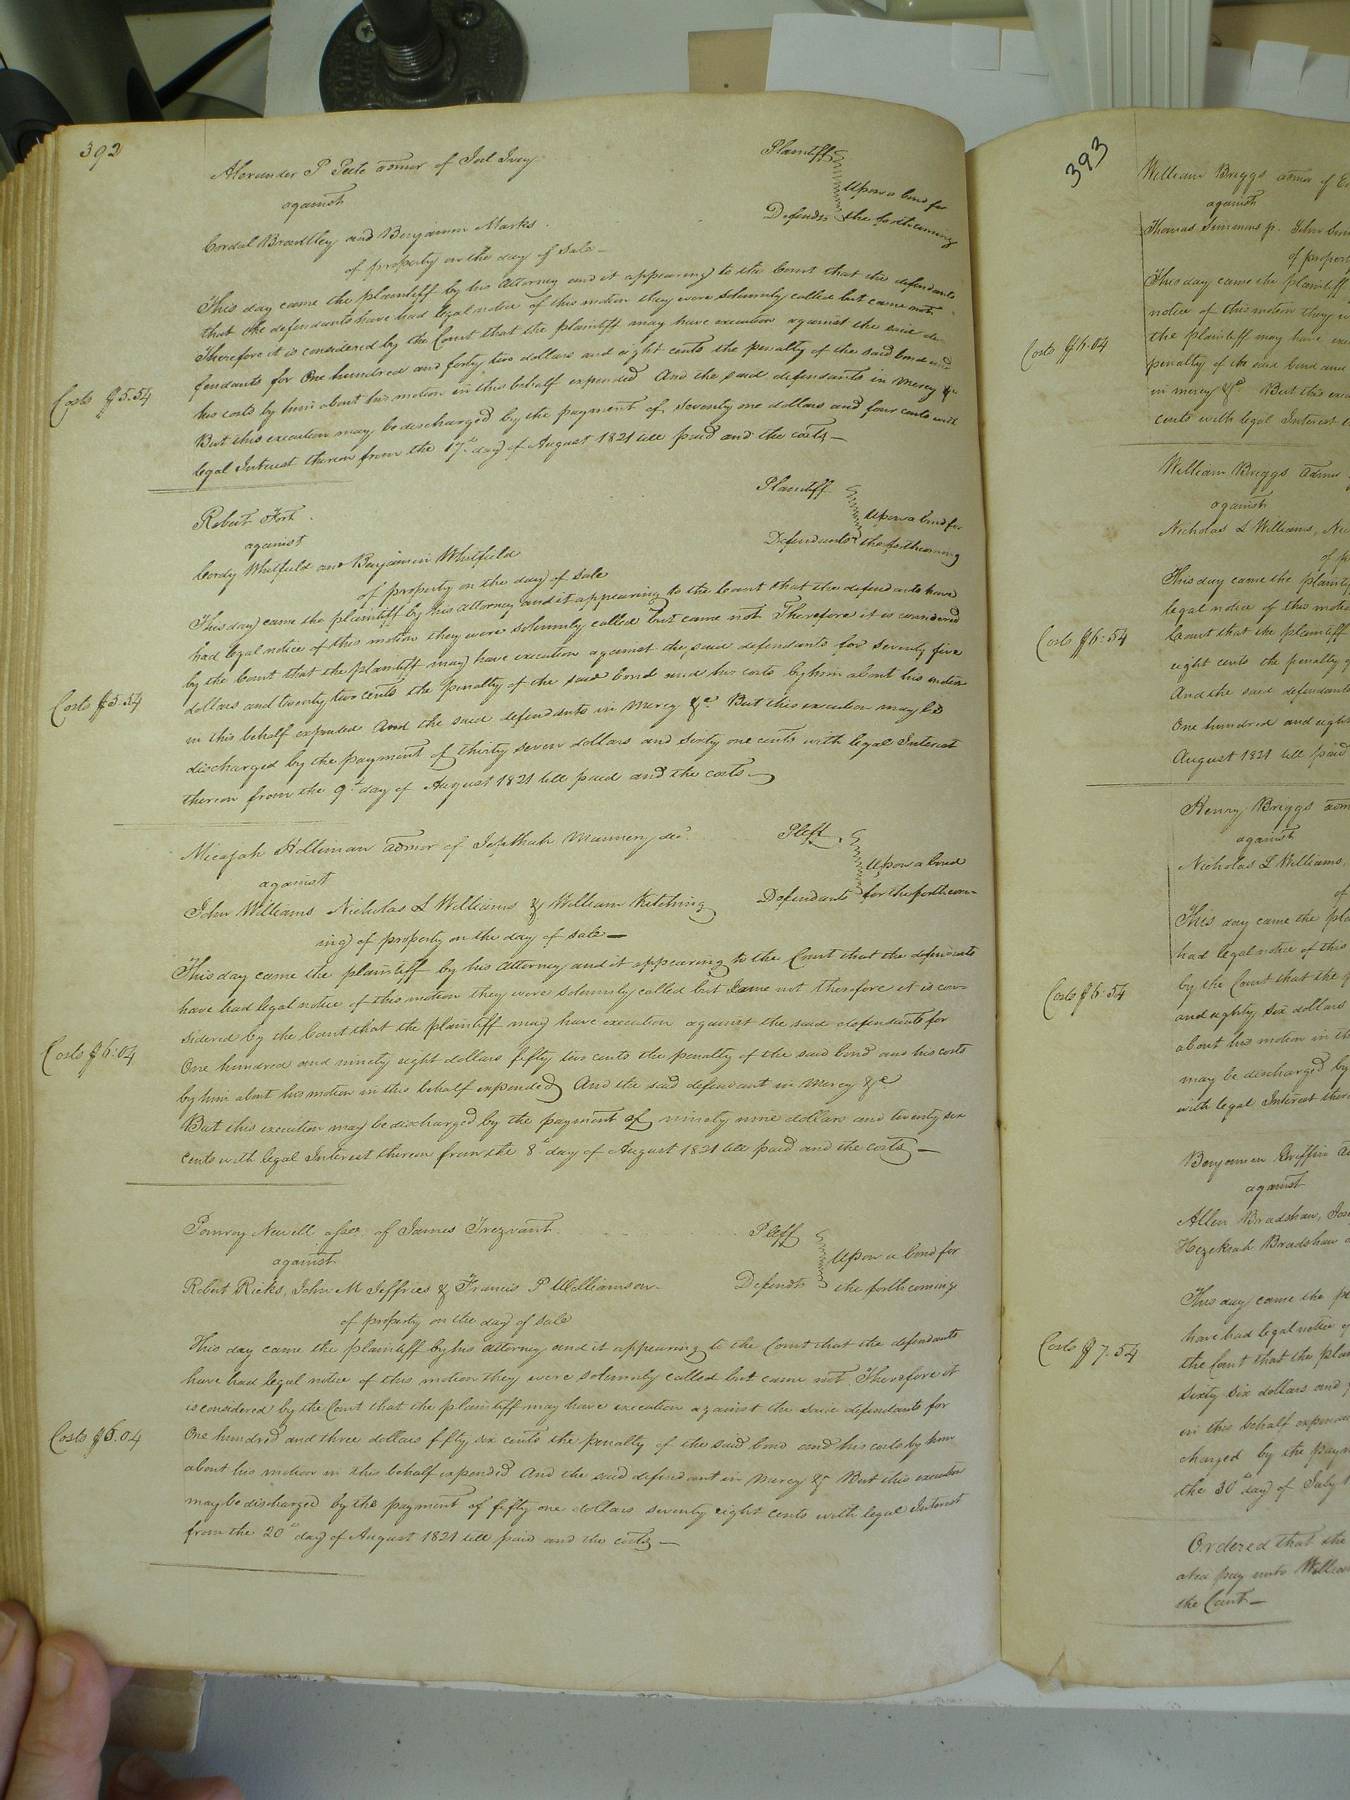 392
Alexander P Peete admor of Joel Ivey Plaintiff
against Upon a bond for
Cordal Bradley and Benjamin Marks. Defendts the forthcoming
of property on the day of sale
This day came the plaintiff by his attorney and it appearing to the Court that the defendants
that the defendants have had legal notice of this motion they were solemnly called but came not.
Therefore it is considered by the Court that the plaintiff may have execution against the said de-
fendants for One hundred and forty two dollars and eight cents the penalty of the said bond and
Costs $5.54
his costs by him about his motion in this behalf expended And the said defendants in mercy &c
But this execution may be discharged by the payment of seventy one dollars and four cents with
legal Interest thereon from the 17th day of August 1821 till paid and the costs
Robert Fort. Plaintiff
against Upon a bond for
Cordy Whitfield and Benjamin Whitfield Defendants the forthcoming
of property on the day of sale
This day came the plaintiff by his attorney and it appearing to the Court that the defendants have
had legal notice of this motion they were solemnly called but came not Therefore it is considered
by the Court that the plaintiff may have execution against the said defendants for seventy five
dollars and twenty two cents the penalty of the said bond and his costs by him about his motion
Costs $5.54
in this behalf expended And the said defendants in mercy &c. But this execution may be
discharged by the payment of thirty seven dollars and sixty one cents with legal Interest
thereon from the 9th day of August 1821 till paid and the costs
Micajah Holliman admor of Jephthah Mannery decd. Pleff
against Upon a bond
John Williams Nicholas L Williams & William Kitching Defendants for the forthcom-
ing of property on the day of sale
This day came the plaintiff by his attorney and it appearing to the Court that the defendants
have had legal notice of this motion they were solemnly called but came not therefore it is con-
sidered by the Court that the plaintiff may have execution against the said defendants for
Costs $6.04
One hundred and ninety eight dollars fifty two cents the penalty of the said bond and his costs
by him about his motion in this behalf expended And the said defendant in mercy &c
But this execution may be discharged by the payment of ninety nine dollars and twenty six
cents with legal Interest thereon from the 8th day of August 1821 till paid and the costs
Pomroy Newell assee. of James Trezvant Pleff
against Upon a bond for
Robert Ricks, John M Jeffries & Francis P Williamson Defendts the forthcoming
of property on the day of sale
This day came the plaintiff by his attorney and it appearing to the Court that the defendants
have had legal notice of this motion they were solemnly called but came not Therefore it
is considered by the Court that the plaintiff may have execution against the said defendants for
Costs $6.04
One hundred and three dollars fifty six cents the penalty of the said bond and his costs by him
about his motion in this behalf expended And the said defendant in mercy & But this execution
may be discharged by the payment of fifty one dollars seventy eight cents with legal Interest
from the 20th day of August 1821 till paid and the costs
393
William Briggs admor of
against
Thomas Simmons jr. John
of
This day came the plaintiff
notice of this motion they
Costs $6.04
the plaintiff may have
penalty of the said bond and
in mercy &c But this
cents with legal Interest
William Briggs admor
against
Nicholas L Williams,
of
This day came the
legal notice of this
Costs $6.54
Court that the plaintiff
eight cents the penalty
And the said defendants
One hundred and eight
August 1821 till paid
Henry Briggs
against
Nicholas L Williams,
of
This day came the
had legal notice of this
by the Court that the
Costs $6.54
and eighty six dollars
about his motion in
may be discharged by
with legal Interest
Benjamin Griffin
against
Allen Bradshaw,
Hezekiah Bradshaw
This day came the
have had legal notice
Costs $7.54
the Court that the
sixty six dollars and
in this behalf
charged by the
the 30th day of July
Ordered that the
pay unto
the Court